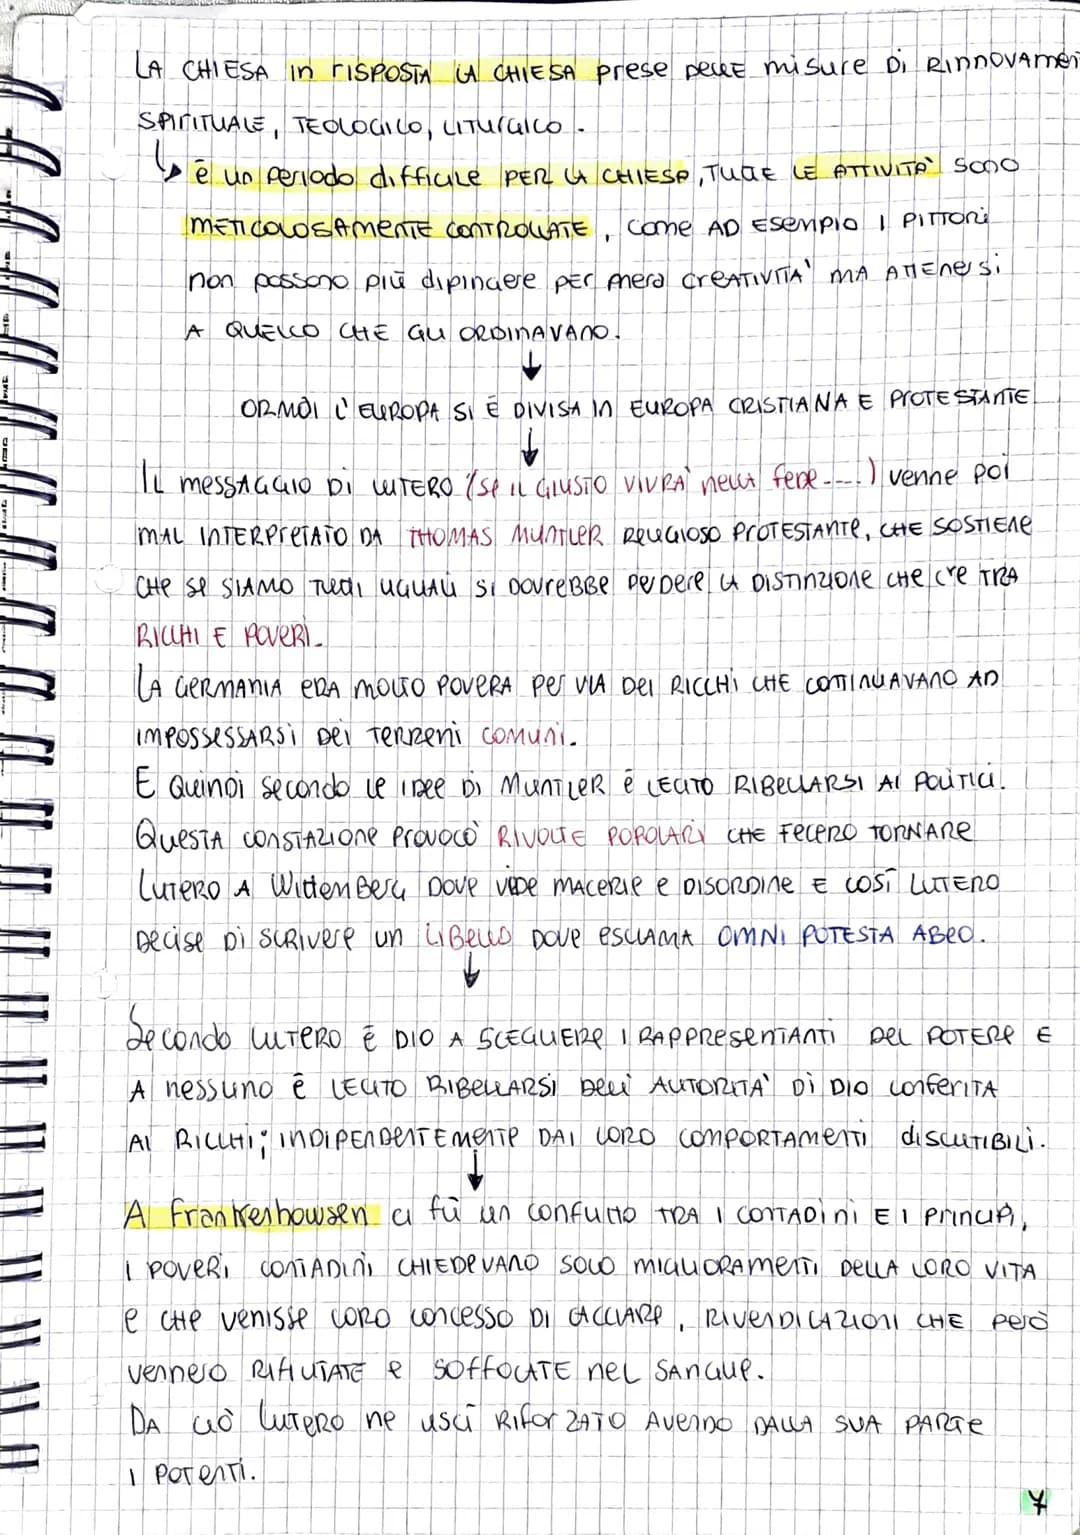 LA CHIESA in risposta LA CHIESA prese delle misure di rinnovamen
SPIRITUALE, TEOLOGICO, LITURGICO.
↳ è un periodo difficile PER LA CHIESA, TUTTE LE ATTIVITÀ SONO
METICOLOSAMENTE CONTROLLATE, COME AD ESEMPIO I PITTORI
non possono più dipingere PER mera CREATIVITÀ MA ATTENERSI
A QUELLO CHE GLI ORDINAVANO.
↓
ORMAI L'EUROPA SI È DIVISA IN EUROPA CRISTIANA E PROTESTANTE
↓
IL MESSAGGIO DI LUTERO (SE IL GIUSTO VIVRÀ NELLA fede----) venne poi
MAL INTERPRETATO DA THOMAS MUNTLER RELIGIOSO PROTESTANTE, CHE SOSTIENE
CHE SE SIAMO TUTTI UGUALI SI DOVREBBE PERDERE LA DISTINZIONE CHE C'È TRA
RICCHI E POVERI.
LA GERMANIA ERA MOLTO POVERA PER VIA DEI RICCHI CHE CONTINUAVANO AD
IMPOSSESSARSI DEI TERRENI COMUNI.
E QUINDI SECONDO LE IDEE DI MUNTLER È LECITO RIBELLARSI AI POLITICI.
QUESTA CONSTAZIONE PROVOCÒ RIVOLTE POPOLARI CHE FECERO TORNARE
LUTERO A WITTEMBERG DOVE VIDE MACERIE E DISORDINE E COSÌ LUTERO
DECISE DI SCRIVERE UN LIBELLO DOVE ESCLAMA OMNI POTESTA ABEO.
↓
SECONDO LUTERO È DIO A SCEGLIERE I RAPPRESENTANTI DEL POTERE E
A NESSUNO È LECITO RIBELLARSI DELL' AUTORITÀ DI DIO CONFERITA
AI RICCHI; INDIPENDENTEMENTE DAI LORO COMPORTAMENTI DISCUTIBILI.
↓
A Frankeshowsen ci fù un conflitto TRA I CONTADINI E I PRINCIPI,
I POVERI CONTADINI CHIEDEVANO SOLO MIGLIORAMENTI DELLA LORO VITA
E CHE VENISSE LORO CONCESSO DI CACCIARE, RIVENDICAZIONI CHE PERÒ
VENNERO RIFIUTATE E SOFFOCATE NEL SANGUE.
DA CIÒ LUTERO NE USCÌ RIFORZATO AVENDO DALLA SUA PARTE
I POTENTI.
7